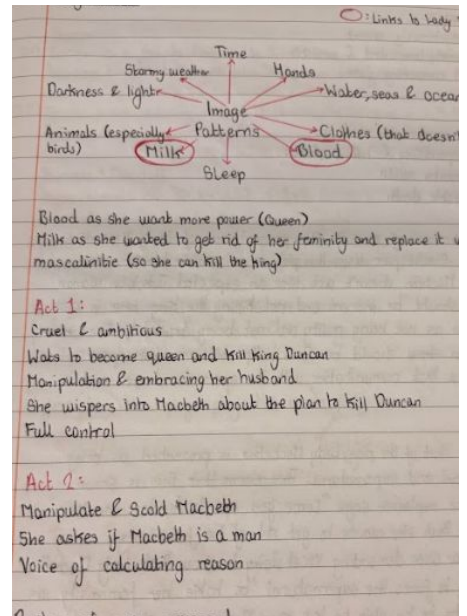 O: Links to Lady
Time
Stormy weather Hands
Darkness & light Water, seas & ocean
Image
Animals (especially Patterns Clothes (that doesn't
birds) Milk Blood
Sleep
Blood as she want more power (Queen)
Milk as she wanted to get rid of her feminity and replace it
mascalinitie (so she can kill the king)
Act 1:
Cruel & ambitious
Wats to become queen and kill King Duncan
Manipulation & embracing her husband
She wispers into Macbeth about the plan to kill Duncan
Full control
Act 2:
Manipulate & Scold Macbeth
She askes if Macbeth is a man
Voice of calculating reason